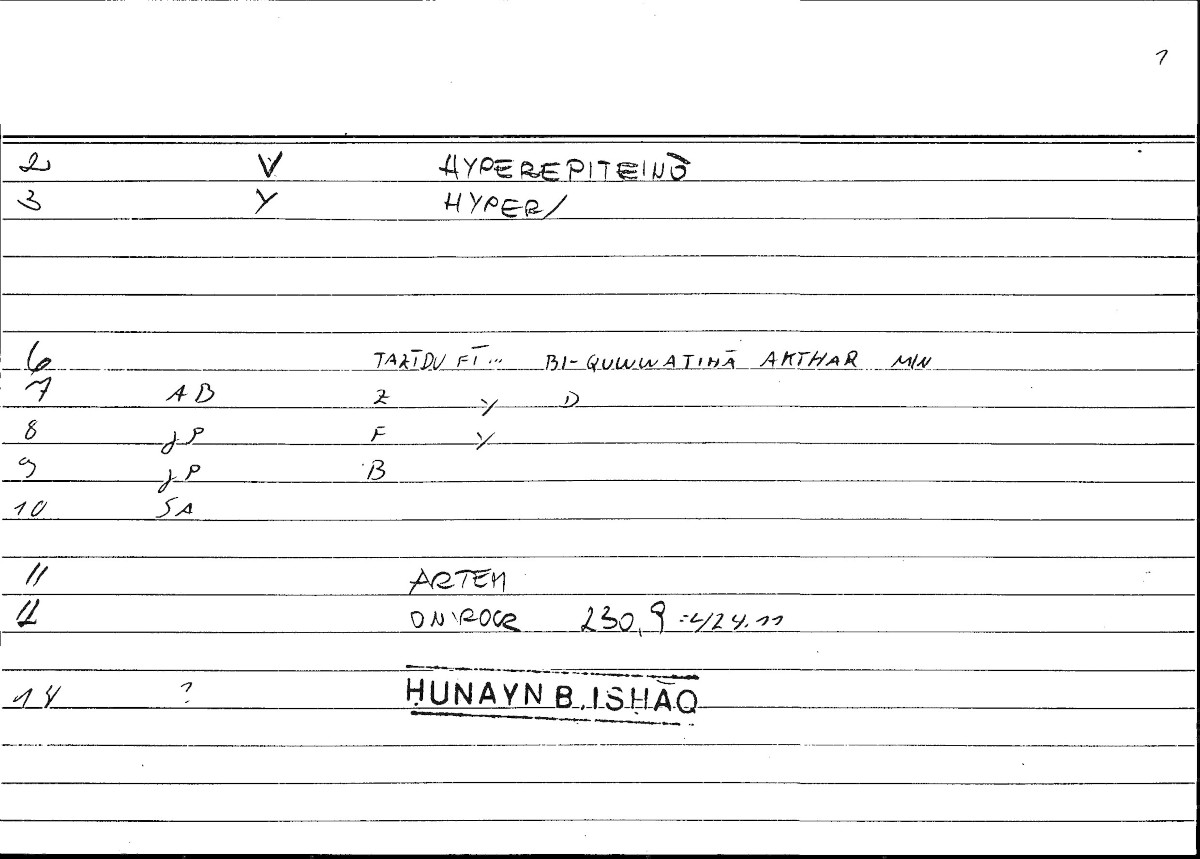 1
2 V HYPEREPITEINŌ
3 Y HYPER/
6 TAZĪDU FĪ... BI-QUWWATIHĀ AKTHAR MIN
7 AB Z Y D
8 JP F Y
9 JP B
10 SA
11 ARTEM
12 ONIROCR 230,9 = 424.11
14 ? ḤUNAYN B. ISḤĀQ